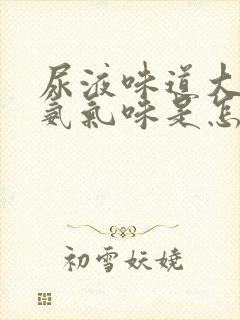 尿液味道大
氨气味是怎
初雪妖娆